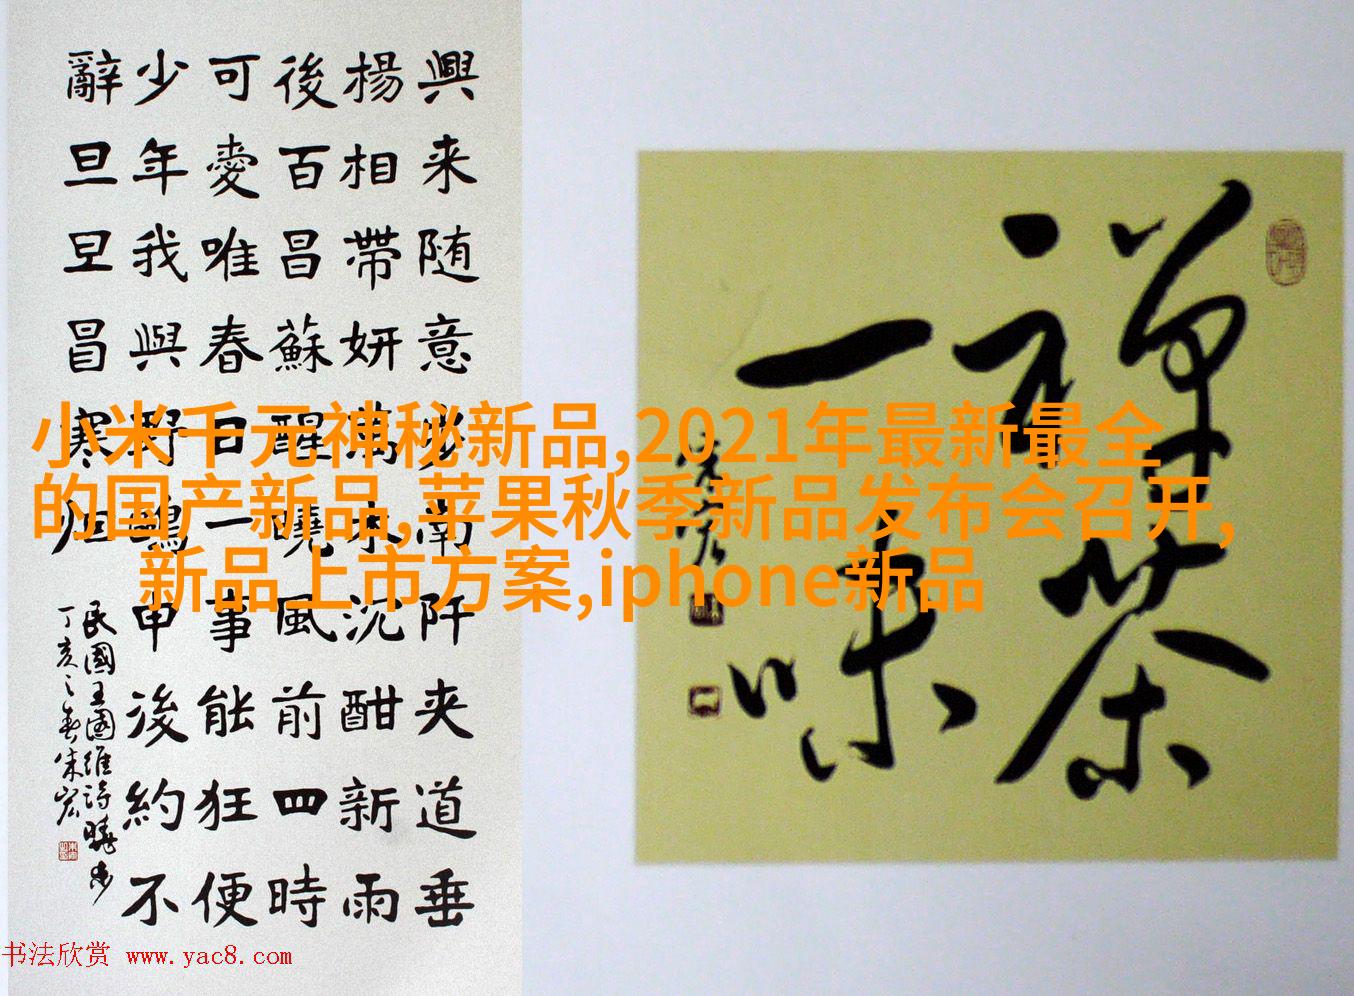 興来随意步南阡夹道垂
楊相帶妍萬木沉酣新雨
後百昌蘇醒曉風前四時
可愛唯春日一事能狂便
少年我與野鷗申後約不
辭旦旦冒寒
民國王國維詩曉步
丁亥之春朱宏
禅茶
一味
小米千元神秘新品,2021年最新最全
的国产新品,苹果秋季新品发布会召开,
新品上市方案,iphone新品
书法欣赏 www.yac8.com